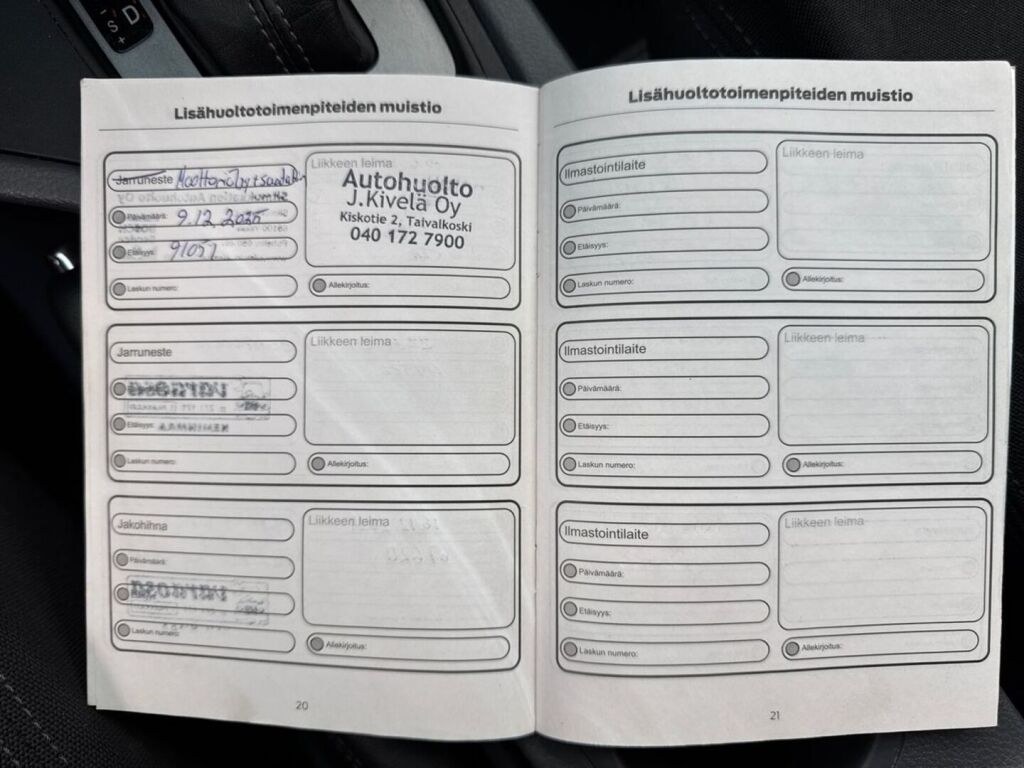 D
S
+
Lisähuoltotoimenpiteiden muistio
Jarruneste Moottoriöljy + suodatin
Päivämäärä: 9.12.2025
Etäisyys: 91051
Laskun numero:
Liikkeen leima
Autohuolto
J.Kivelä Oy
Kiskotie 2, Taivalkoski
040 172 7900
Allekirjoitus:
Jarruneste
Etäisyys:
Laskun numero:
Liikkeen leima
Allekirjoitus:
Jakohihna
Päivämäärä:
Laskun numero:
Liikkeen leima
Allekirjoitus:
20
Lisähuoltotoimenpiteiden muistio
Ilmastointilaite
Päivämäärä:
Etäisyys:
Laskun numero:
Liikkeen leima
Allekirjoitus:
Ilmastointilaite
Päivämäärä:
Etäisyys:
Laskun numero:
Liikkeen leima
Allekirjoitus:
Ilmastointilaite
Päivämäärä:
Etäisyys:
Laskun numero:
Liikkeen leima
Allekirjoitus:
21